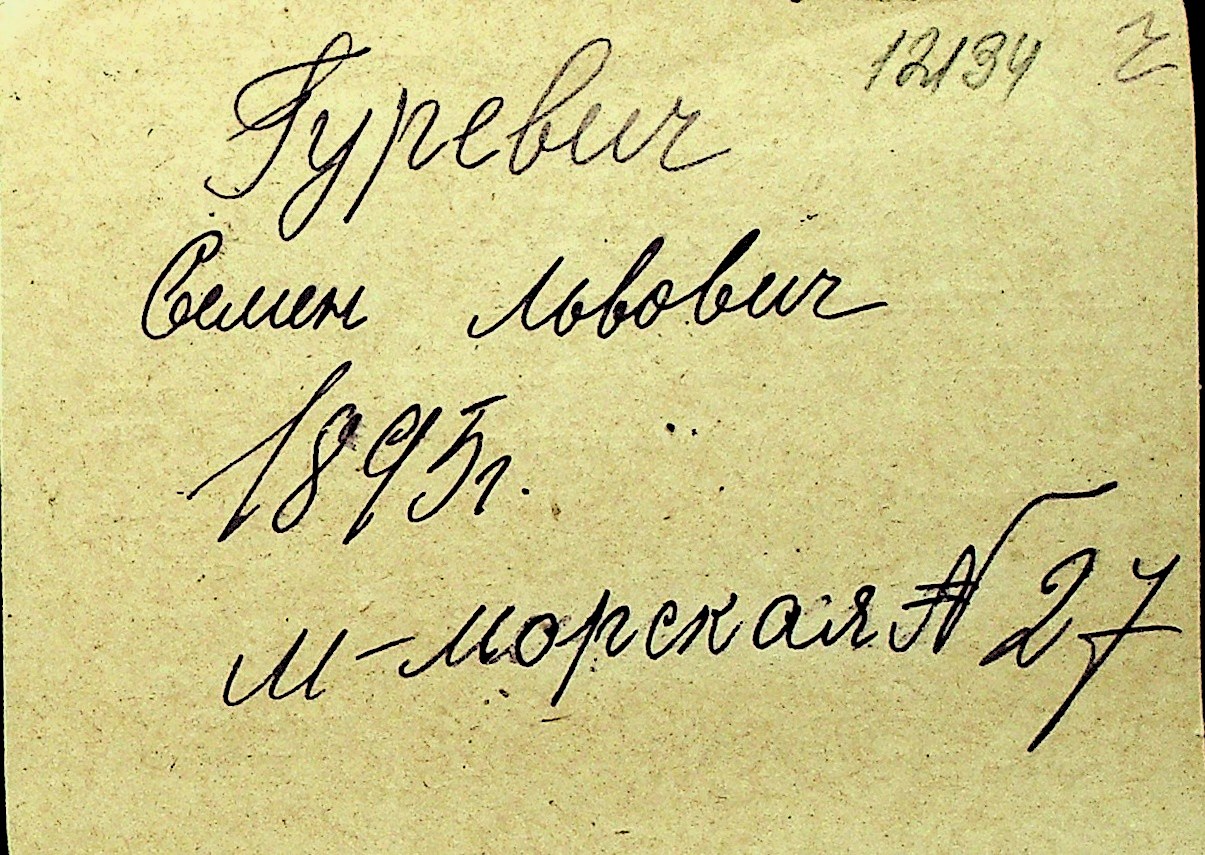 12134 г
Гуревич
Семен Львович
1895г.
М-морская № 27